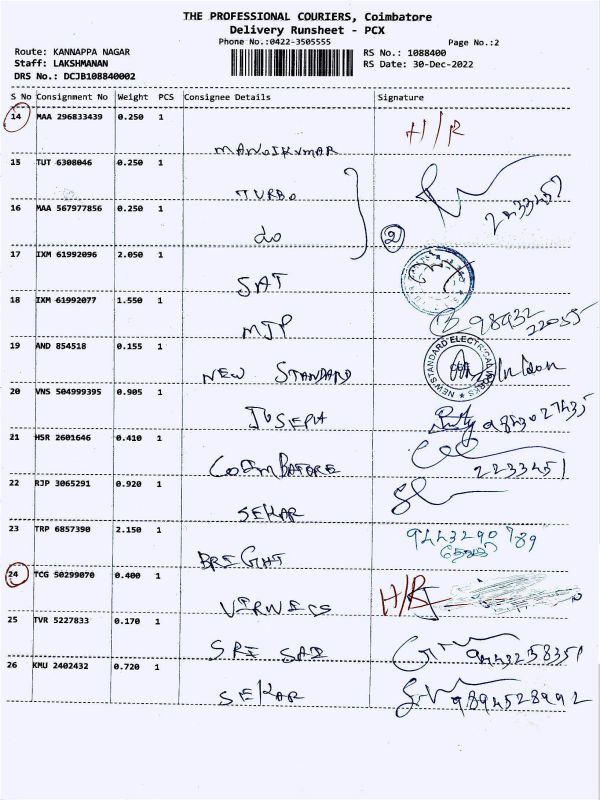 THE PROFESSIONAL COURIERS, Coimbatore
Delivery Runsheet - PCX
Phone No.:0422-3505555 Page No.:2
Route: KANNAPPA NAGAR RS No.: 1088400
Staff: LAKSHMANAN RS Date: 30-Dec-2022
DRS No.: DCJB108840002
S No Consignment No Weight PCS Consignee Details Signature
14 MAA 296833439 0.250 1 H/R
MANOJKUMAR
15 TUT 6308046 0.250 1
TURBO
16 MAA 567977856 0.250 1
do 2
17 IXM 61992096 2.050 1
SAT
18 IXM 61992077 1.550 1
MJP 98432 22055
19 AND 854518 0.155 1
NEW STANDARD NEW STANDARD ELECTRICAL
20 VNS 504999395 0.905 1
JOSEPH 9843027435
21 HSR 2601646 0.410 1
COIMBATORE 2233451
22 RJP 3065291 0.920 1
SEKAR
23 TRP 6857390 2.150 1 9443290789
BRIGHT
24 TCG 50299070 0.400 1 H/R
25 TVR 5227833 0.170 1
SRI SAI 9443258351
26 KMU 2402432 0.720 1
SEKAR 9894528992